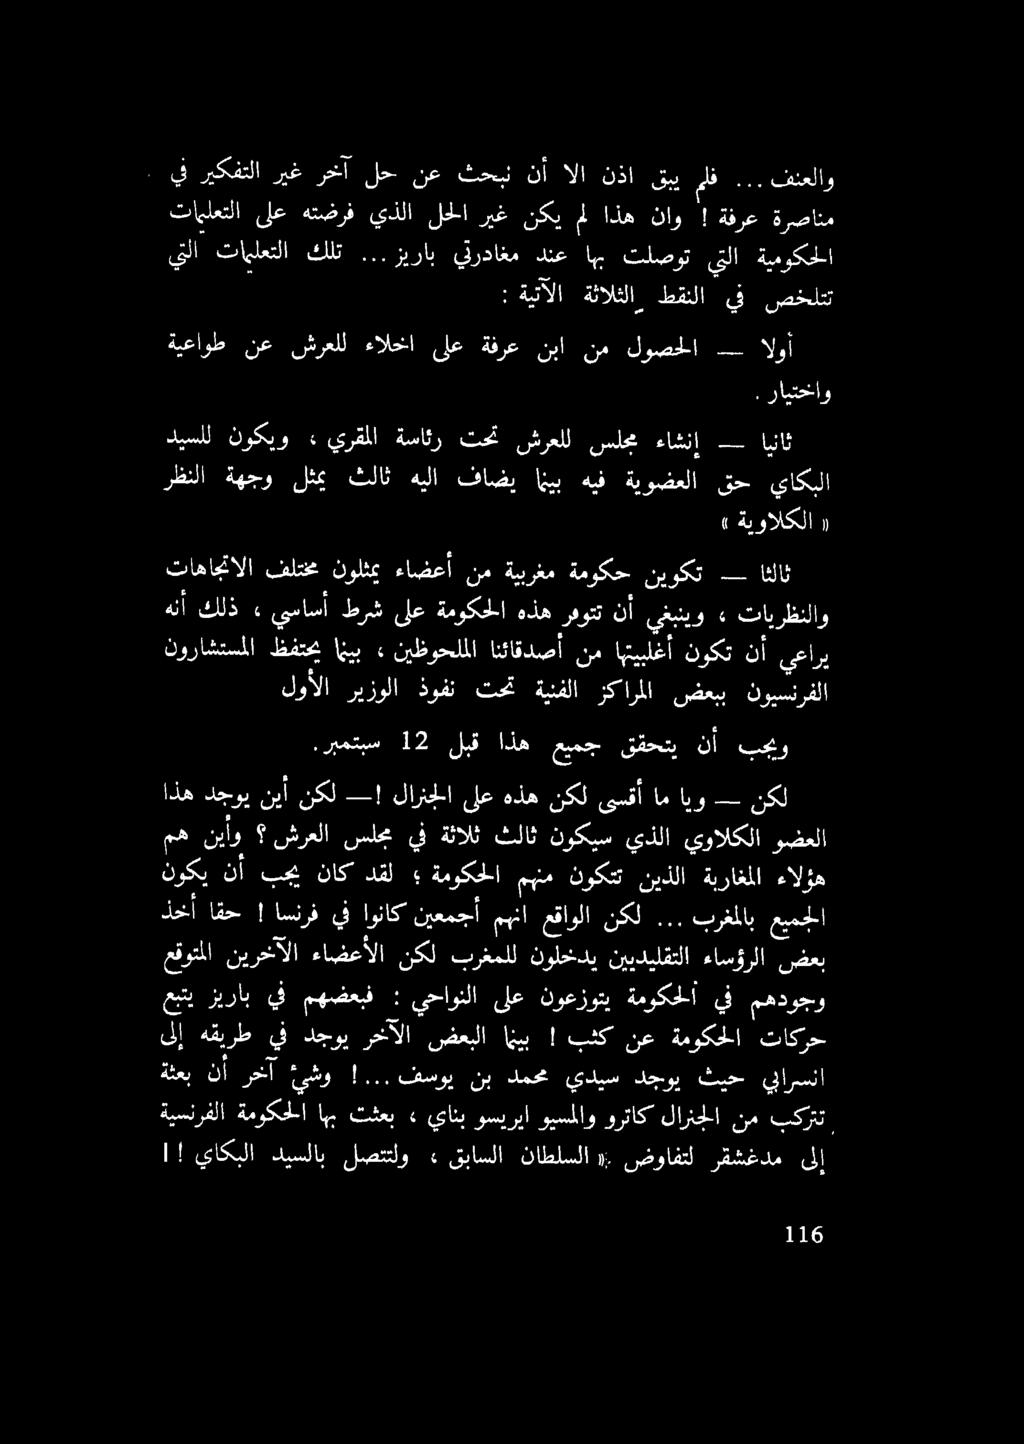 والعنف ... فلم يبق اذن الا أن نبحث عن حل آخر غير التفكير في
مناصرة عرفة ! وان هذا لم يكن غير الحل الذي فرضته على التعليمات
الحكومية التي توصلت بها عند مغادرتي باريز ... تلك التعليمات التي
تتلخص في النقط الثلاثة الآتية :
أولا — الحصول من ابن عرفة على اخلاء للعرش عن طواعية
واختيار .
ثانيا — إنشاء مجلس للعرش تحت رئاسة المقري ، ويكون للسيد
البكاي حق العضوية فيه بينما يضاف اليه ثالث يمثل وجهة النظر
« الكلاوية »
ثالثا — تكوين حكومة مغربية من أعضاء يمثلون مختلف الاتجاهات
والنظريات ، وينبغي أن تتوفر هذه الحكومة على شرط أساسي ، ذلك أنه
يراعي أن تكون أغلبيتها من أصدقائنا الملحوظين ، بينما يحتفظ المستشارون
الفرنسيون ببعض المراكز الفنية تحت نفوذ الوزير الأول
ويجب أن يتحقق جميع هذا قبل 12 سبتمبر.
لكن — ويا ما أقسى لكن هذه على الجنرال ! — لكن أين يوجد هذا
العضو الكلاوي الذي سيكون ثالث ثلاثة في مجلس العرش ؟ وأين هم
هؤلاء المغاربة الذين تتكون منهم الحكومة ؛ لقد كان يجب أن يكون
الجميع بالمغرب ... لكن الواقع انهم أجمعين كانوا في فرنسا ! حقا أخذ
بعض الرؤساء التقليديين يدخلون للمغرب لكن الأعضاء الآخرين المتوقع
وجودهم في الحكومة يتوزعون على النواحي : فبعضهم في باريز يتبع
حركات الحكومة عن كثب ! بينما البعض الآخر يوجد في طريقه إلى
انسرابي حيث يوجد سيدي محمد بن يوسف ... ! وشيء آخر أن بعثة
تتركب من الجنرال كاترو والمسيو ايريسو بناي ، بعثت بها الحكومة الفرنسية
إلى مدغشقر لتفاوض « السلطان السابق ، ولتتصل بالسيد البكاي ! ا
116